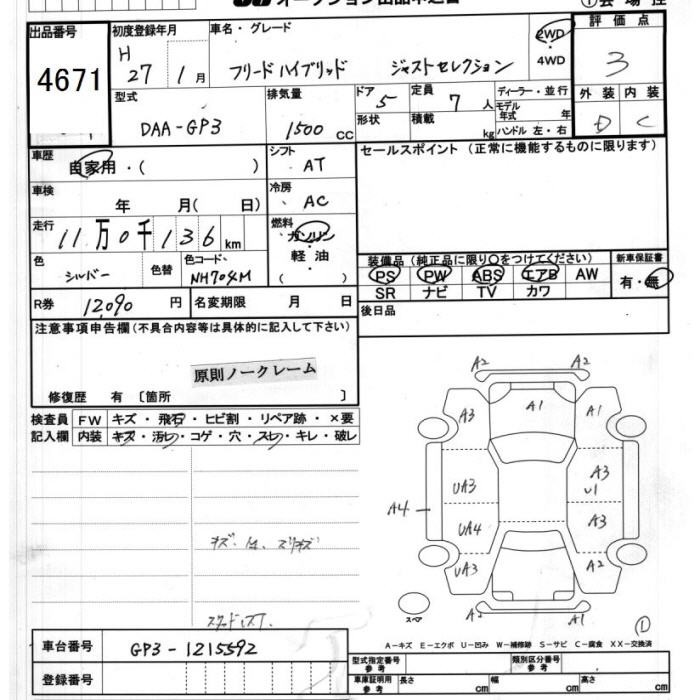 オークション出品申込書 ①会場控
出品番号 4671
初度登録年月 H 27年 1月
車名・グレード フリードハイブリッド ジャストセレクション
2WD ・ 4WD
評価点 3
外装 D 内装 C
型式 DAA-GP3
排気量 1500 CC
ドア 5 形状
定員 7 人 積載 kg
ディーラー・並行
モデル年式 年
ハンドル 左・右
車歴 自家用・( )
シフト AT
車検 年 月( 日)
冷房 AC
走行 11万0千136km
燃料 ガソリン・軽油 ( )
色 シルバー 色替
色コード NH704M
R券 12,090 円
名変期限 月 日
セールスポイント (正常に機能するものに限ります)
装備品 (純正品に限り○をつけてください)
PS PW ABS エアB AW
SR ナビ TV カワ
新車保証書
有・無
後日品
注意事項申告欄(不具合内容等は具体的に記入して下さい)
原則ノークレーム
修復歴 有 〔箇所 〕
検査員記入欄
FW キズ・飛石・ヒビ割・リペア跡・×要
内装 キズ・汚れ・コゲ・穴・スレ・キレ・破レ
A2 A2
A3 A1 A1
UA3 A3 U1
A4 UA4 A3
UA3 A2
スペア A2 A1
①
A-キズ E-エクボ U-凹み W-補修跡 S-サビ C-腐食 XX-交換済
車台番号 GP3-1215592
登録番号
型式指定番号 参考 類別区分番号 参考
車庫証明用 参考 長さ cm 幅 cm 高さ cm